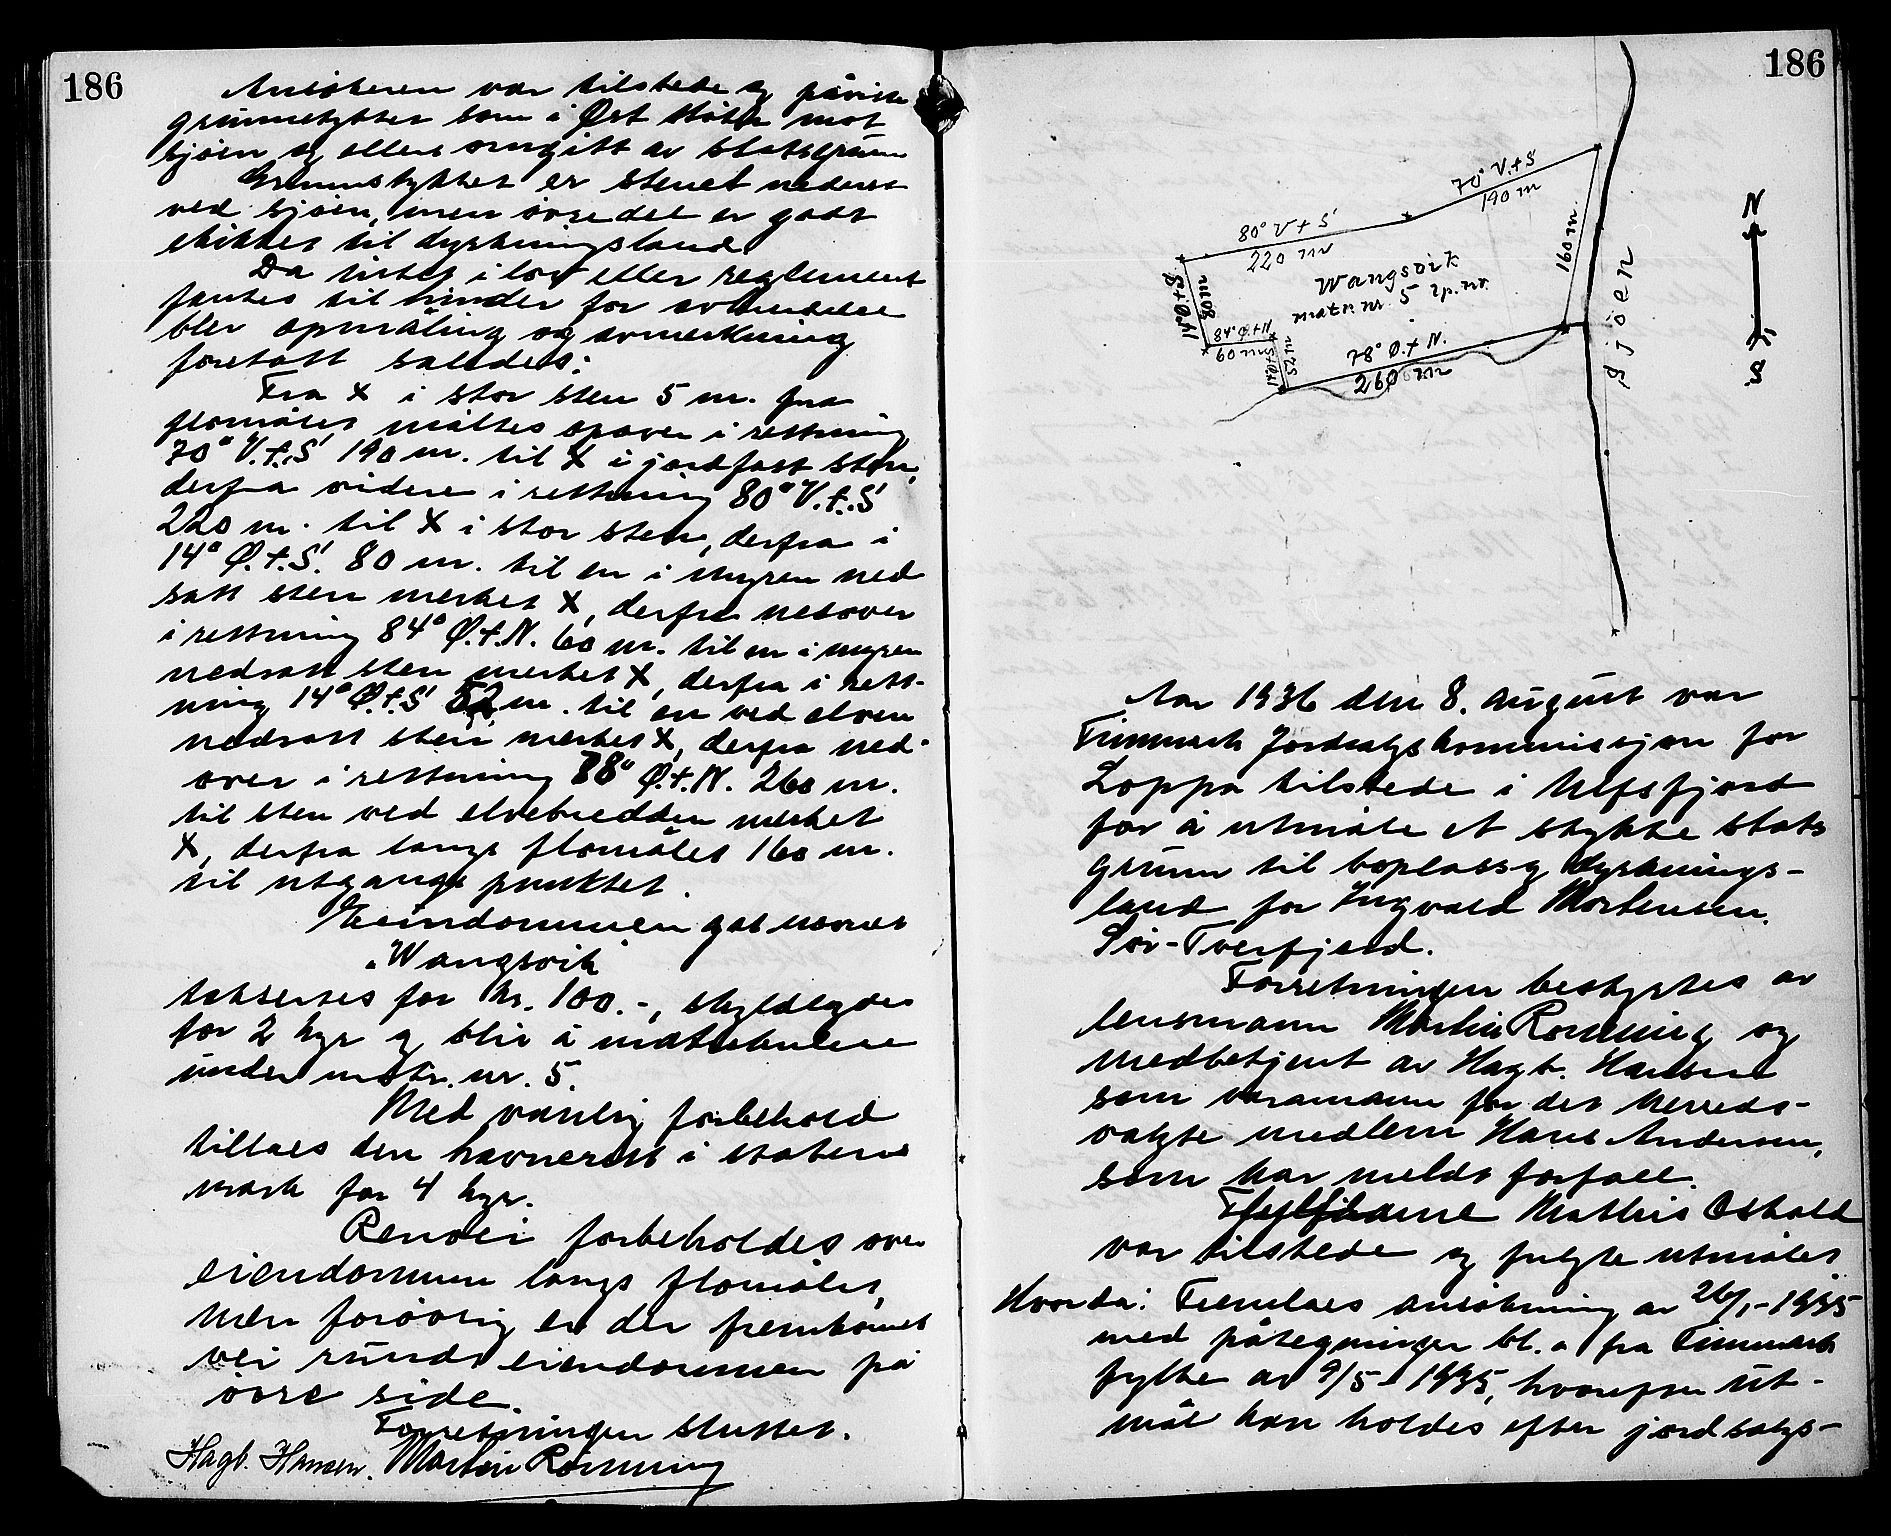 186
Ansökeren var tilstede og påviste
grunnstykket som i Öst støter mot
sjöen og ellers omgitt av statsgrunn
Grunnstykket er stenet nederst
ved sjöen, men övre del er godt
skikket til dyrkningsland
Da intet i lov eller reglement
fantes til hinder for avhendelse
blev opmåling og avmerkning
foretatt således:
Fra X i stor sten 5 m. fra
flomålet måltes opover i rettning
70° V.t.S 190 m. til X i jordfast sten,
derfra videre i rettning 80° V.t.S
220 m. til X i stor sten, derfra i
14° Ø.t.S. 80 m. til en i myren ned
satt sten merket X, derfra nedover
i rettning 84° Ø.t.N. 60 m. til en i myren
nedsatt sten merket X, derfra i rett-
ning 14° Ø.t.S 52 m. til en ved elven
nedsatt sten merket X, derfra ned-
over i rettning 78° Ø.t.N. 260 m.
til sten ved elvebredden merket
X, derfra langs flomålet 160 m.
til utgangspunktet.
Eiendommen gat navnet
"Wangsvik"
takseres for kr. 100.-, skyldlegdes
for 2 kyr og blir å matrikulere
under matr. nr. 5.
Med vanlig forbehold
tillaes den havnerett i statens
mark for 4 kyr.
Renvei forbeholdes over
eiendommen langs flomålet,
men forövrig er der fremkomst
vei rundt eiendommen på
övre side.
Forretningen sluttet.
Hagb. Hansen. Martin Rønning
186
70° V.t.S
190 m
80° V t S
220 m
160 m.
N
S
Sjöen
Wangsvik
matr. nr. 5 lp. nr.
14° Ø t S
80 m
84° Ø.t.N
60 m
14° Ø t S
52 m
78° Ø.t.N.
260 m
Aar 1936 den 8. august var
Finnmark Jordsalgskommissjon for
Loppa tilstede i Ulfsfjord
for å utmåle et stykke stats
grunn til boplass og dyrknings-
land for Ingvald Mortensen.
Sör-Tverfjord.
Forretningen bestyrtes av
lensmann Martin Rønning og
medbetjent av Hagb. Hansen
som varamann for det herreds-
valgte medlem Hans Andersen,
som har meldt forfall.
Mathis Oskald
var tilstede og fulgte utmålet
Hvorda: Fremlaes ansökning av 26/1-1935
med påtegninger bl. a fra Finnmark
fylke av 9/5-1935, hvorefter ut-
mål kan holdes efter jordsalgs-